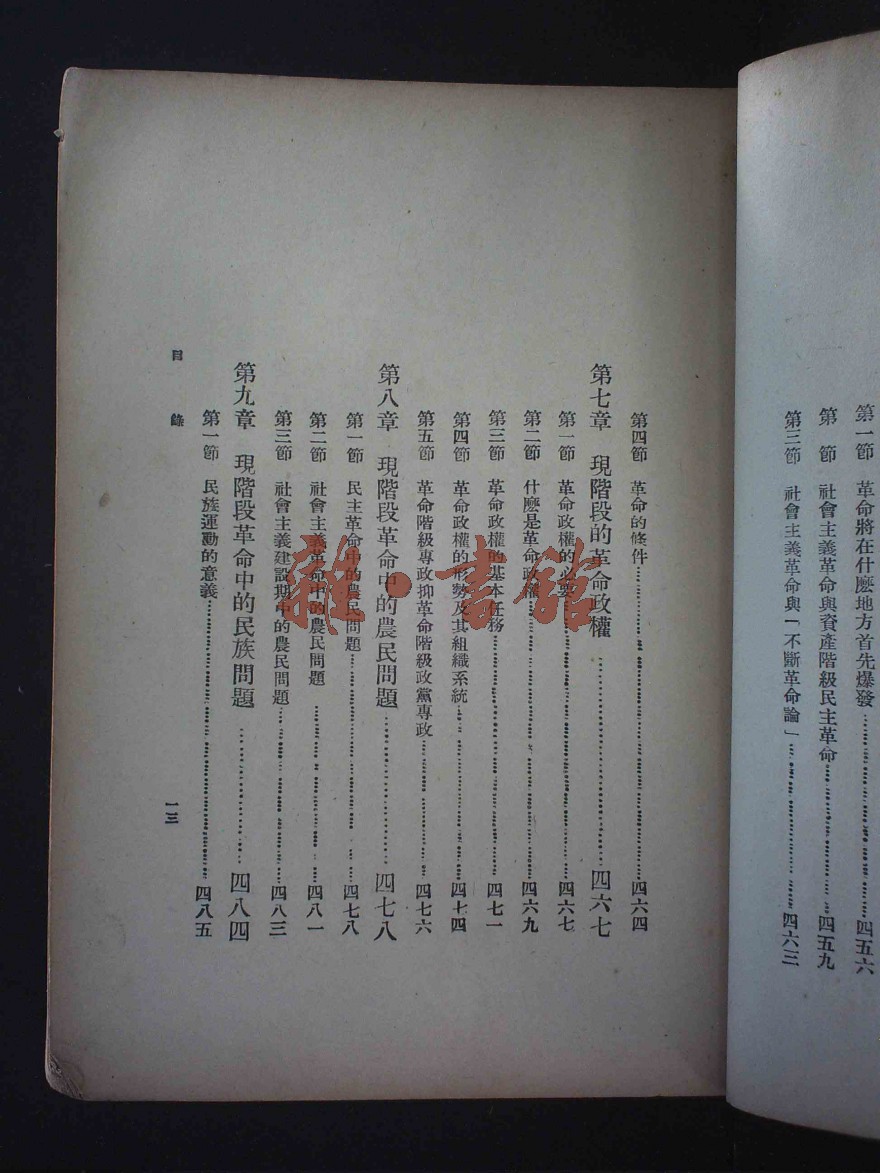 第一節　革命將在什麽地方首先爆發……四五六
第　節　社會主義革命與資產階級民主革命……四五九
第三節　社會主義革命與「不斷革命論」……四六三
第四節　革命的條件……四六四
第七章　現階段的革命政權……四六七
第一節　革命政權的必要……四六七
第二節　什麽是革命政權……四六九
第三節　革命政權的基本任務……四七一
第四節　革命政權的形勢及其組織系統……四七四
第五節　革命階級專政抑革命階級政黨專政……四七六
第八章　現階段革命中的農民問題……四七八
第一節　民主革命中的農民問題……四七八
第二節　社會主義革命中的農民問題……四八一
第三節　社會主義建設期中的農民問題……四八三
第九章　現階段革命中的民族問題……四八四
第一節　民族運動的意義……四八五
目錄
一三
雜·書館